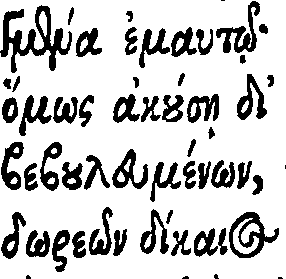 ἐμαυτῷ·
ὅμως ἀκούσῃ δι᾽
βεβουλευμένων,
δωρεῶν δίκαιος